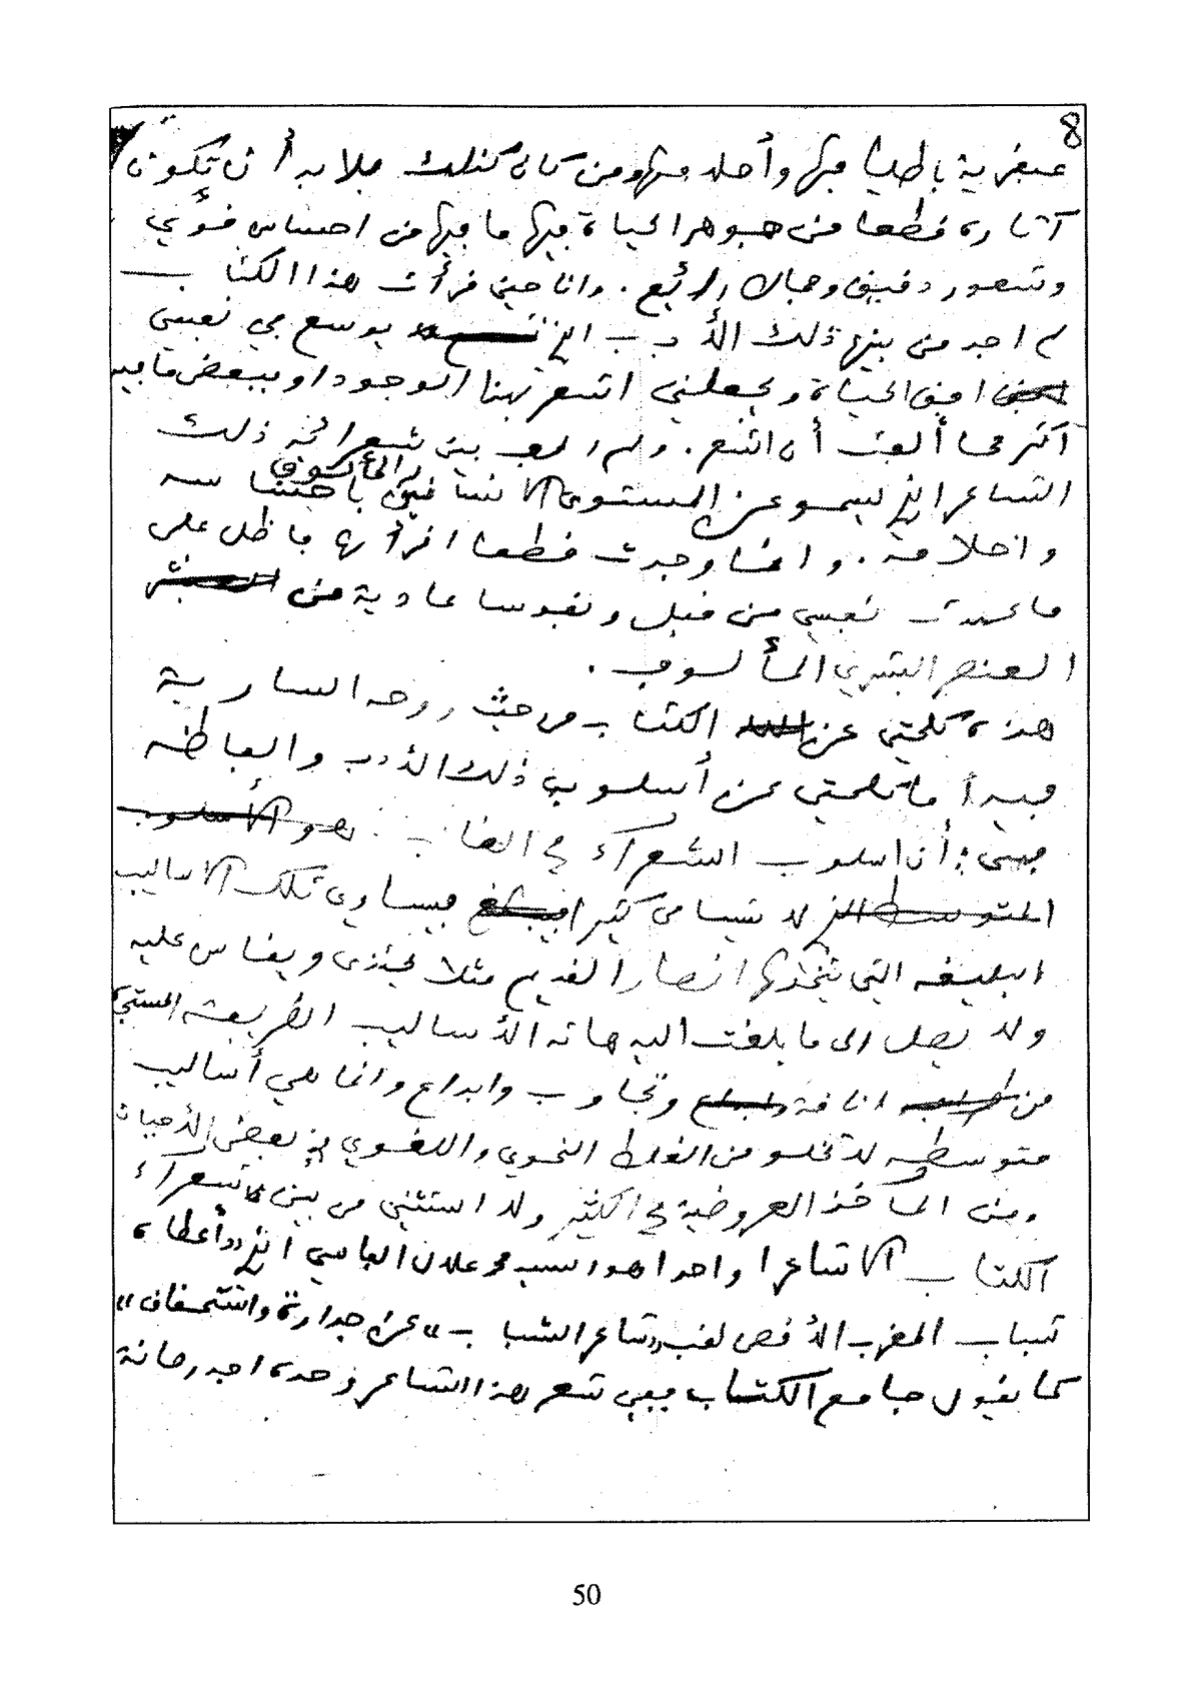 8
عبقرية باطلا فيها وأحلام ومن كان كذلك فلا بد أن تكون
آثاره قطعا من جوهر الحياة فيها ما فيها من احساس قوي
وشعور دقيق وخيال رائع. وانا حين قرأت هذا الكتاب
لم اجد من بينها ذلك الأدب الذي يوسع في نفسي
افق الحياة ويجعلني اشعر بهذا الوجود او ببعض ما فيه
اكثر مما ألفت أن اشعر. ولم الف بين شعرائه ذلك
الشاعر الذي يسمو عن المستوى الانساني المألوف باحساسه
واخلاقه. وانما وجدت قطعا اقرأها فاظل على
ما عهدت نفسي من قبل ونفوسا عادية من
العنصر البشري المألوف.
هذه كلمتي عن الكتاب من حيث روحه السارية
فيه أما كلمتي عن أسلوب ذلك الأدب والفاظه
فهي: أن اسلوب الشعراء في الغالب هو الأسلوب
المتوسط الذي لا يتسامى كثيرا فيساوي تلك الاساليب
البليغة التي يتخذها انصار القديم مثلا يحتذى ويقاس عليه
ولا يصل الى ما بلغت اليه هاته الأساليب الطريفة
من اناقة وتجاوب وابداع وانما هي أساليب
متوسطة لا تخلو من الغلط النحوي واللغوي في بعض الأحيان
ومن المآخذ العروضية في الكثير ولا استثني من بين شعراء
الكتاب الا شاعرا واحدا هو السيد محمد علال الفاسي الذي «أعطاه
شباب المغرب الأقصى لقب «شاعر الشباب» عن جدارة واستحقاق»
كما يقول جامع الكتاب ففي شعر هذا الشاعر وحده اجد رصانة
50